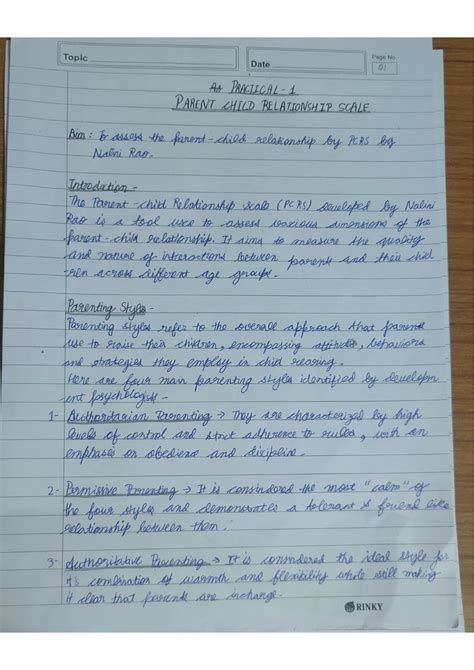 Topic
Date
Page No.
01
PRACTICAL - 1
PARENT CHILD RELATIONSHIP SCALE
Aim : To assess the parent-child relationship by PCRS by
Nalini Rao.
Introduction -
The Parent-child Relationship scale (PCRS) developed by Nalini
Rao is a tool use to assess various dimensions of the
parent-child relationship. It aims to measure the quality
and nature of interactions between parents and their child
ren across different age groups.
Parenting Styles -
Parenting styles refer to the overall approach that parents
use to raise their children, encompassing attitudes, behaviors
and strategies they employ in child rearing.
Here are four main parenting styles identified by developm
ent psychologists -
1- Authoritarian Parenting → They are characterized by high
levels of control and strict adherence to rules, with an
emphases on obedience and dicipline.
2- Permissive Parenting → It is considered the most "calm" of
the four styles and demonstrates a tolerant & friend like
relationship between them.
3- Authoritative Parenting → It is considered the ideal style for
it's combination of warmth and flexibility while still making
it clear that parents are incharge.
RINKY